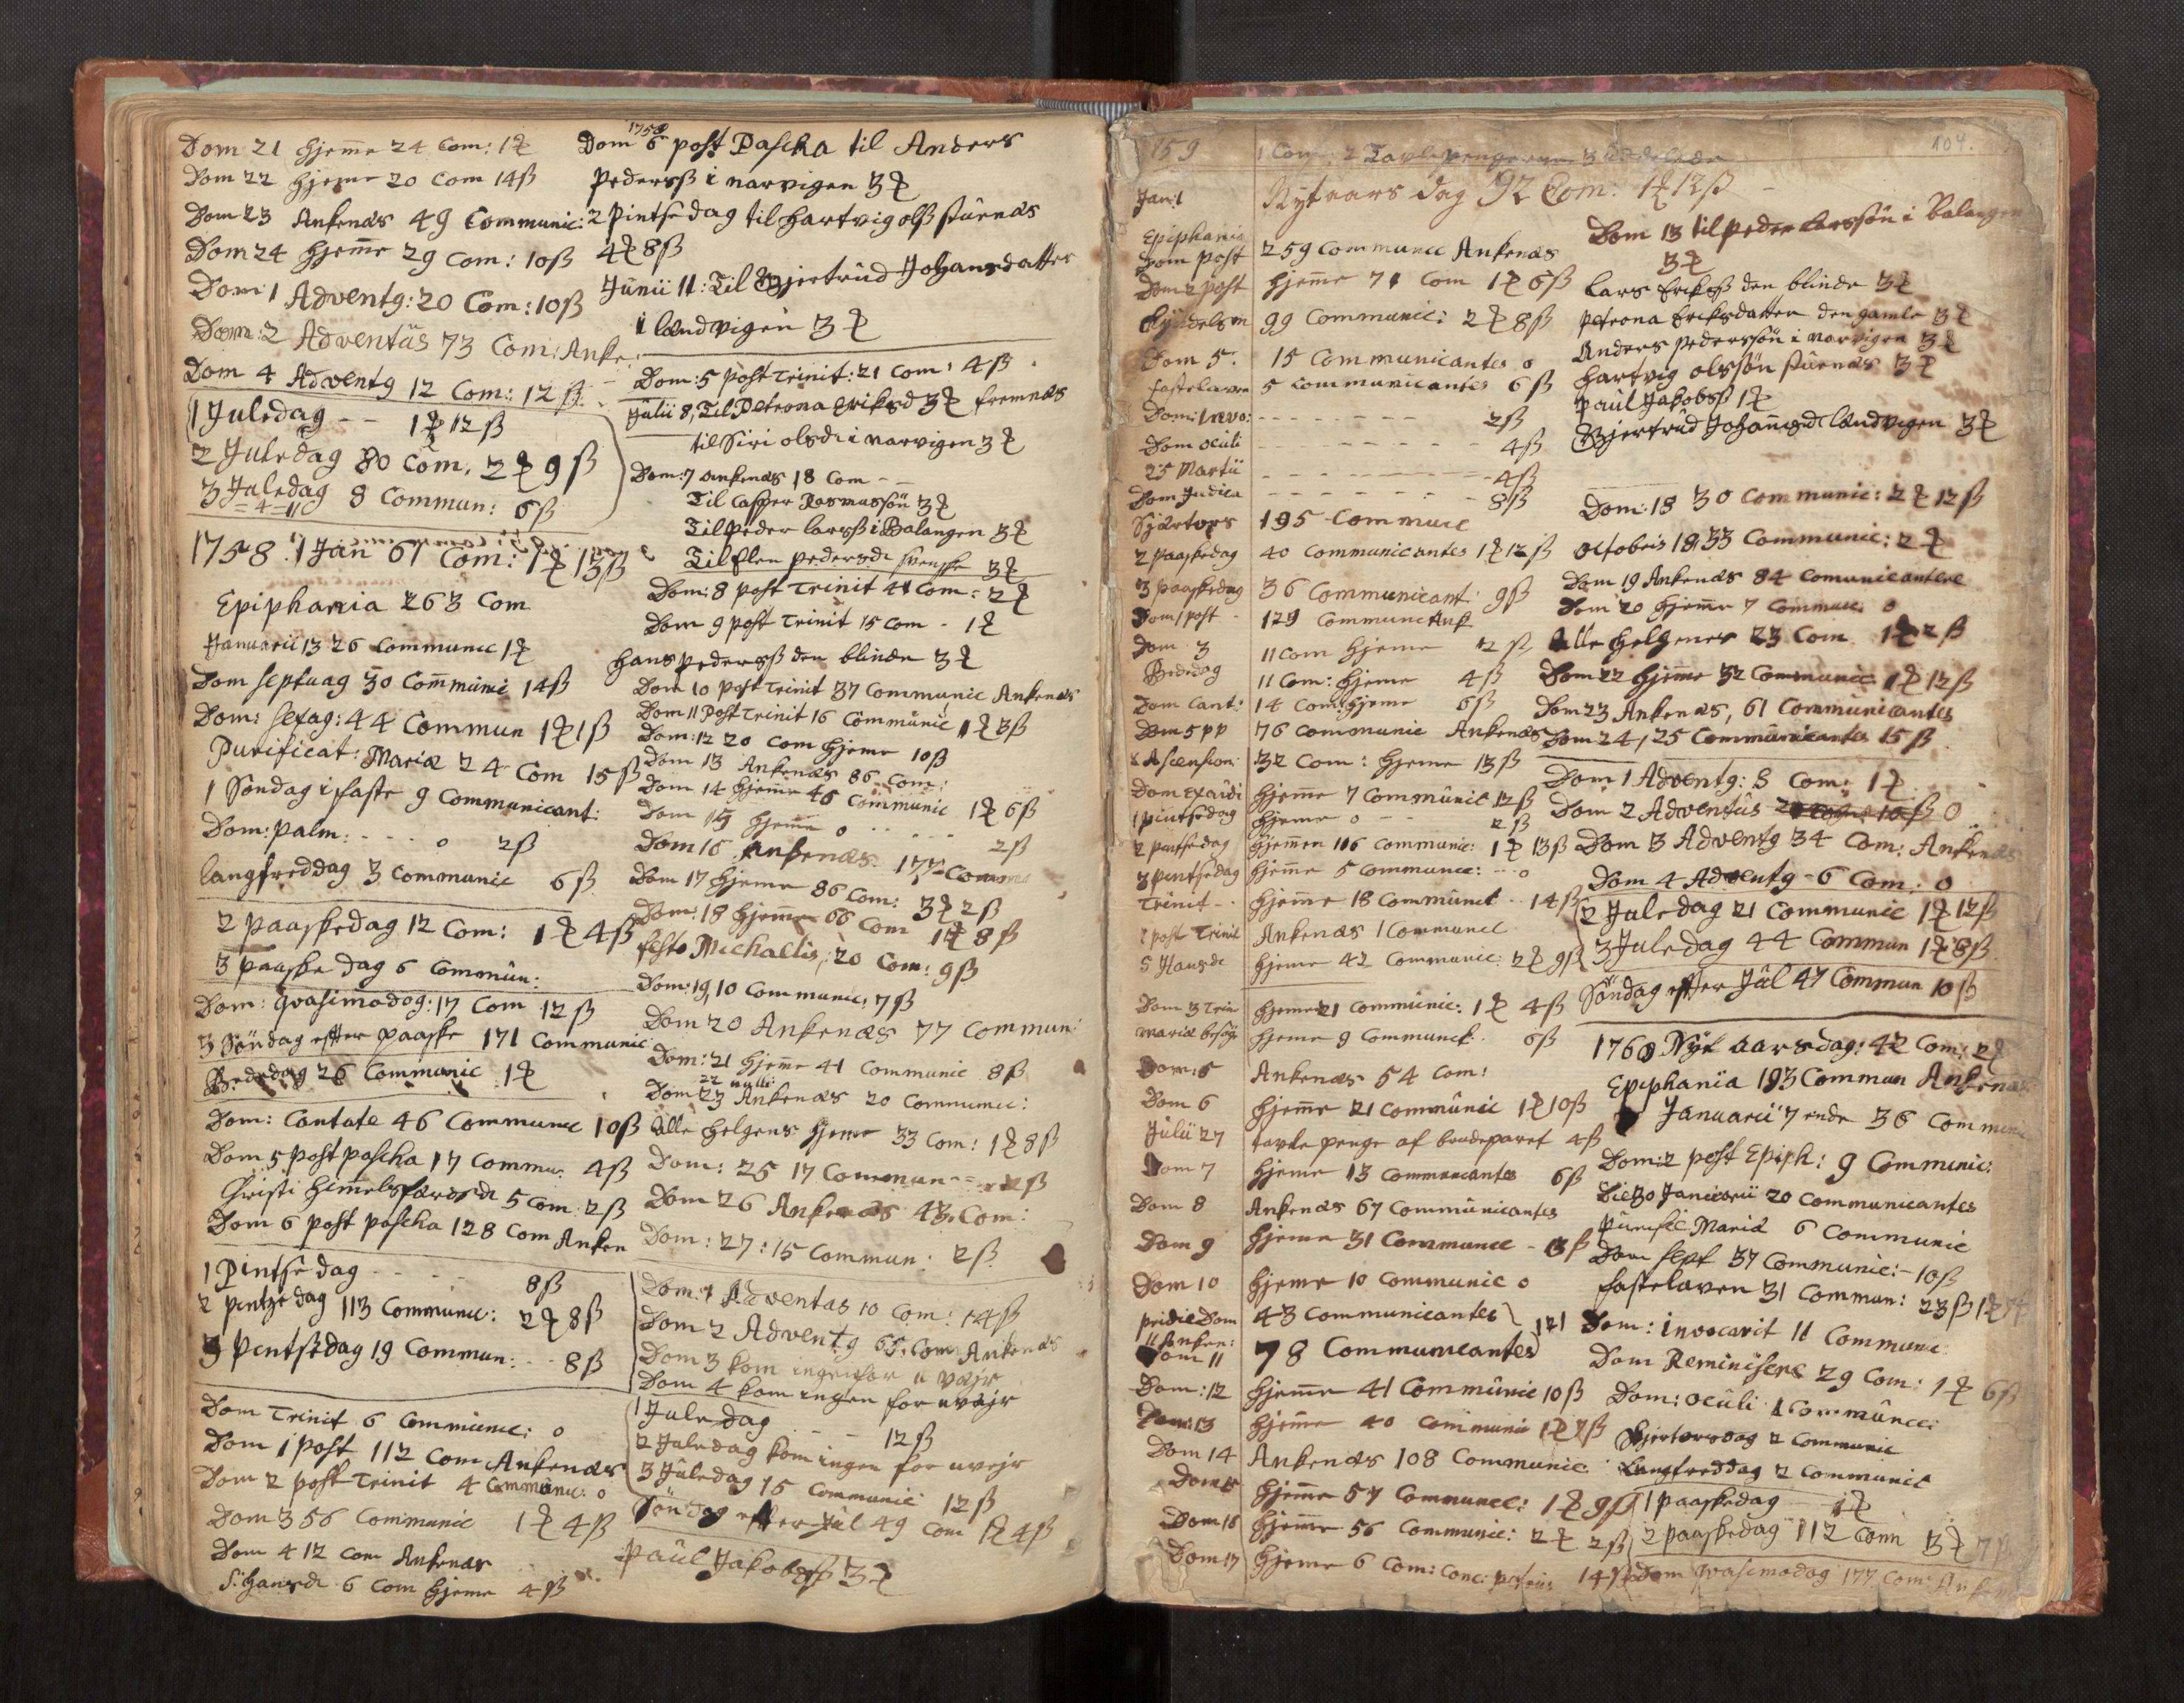 Dom 21 hjem̅e 24 Com: 1 ℔
Dom 22 hjeme 20 Com 14 ß
Dom 23 Ankenæs 49 Communic:
Dom 24 hjem̅e 29 Com: 10 ß
Dom: 1 Adventg: 20 Com: 10 ß
Dom: 2 Adventûs 73 Com: Anke
Dom 4 Adventg 12 Com: 12 ß
1 Juledag - - 1 ℔ 12 ß
2 Juledag 80 Com. 2 ℔ 9 ß
3 Juledag 8 Commun: 6 ß
1758. 1 Jan 61 Com: 1 ℔ 13 ß
Epiphania 263 Com
Januarii 13 26 Communic 1 ℔
Dom septuag 30 Com̅uni 14 ß
Dom: sexag: 44 Commun 1 ℔ 1 ß
Purificat: Mariæ 24 Com 15 ß
1 Söndag i faste 9 Communicant:
Dom: palm: - - - 0 2 ß
langfreddag 3 Communic 6 ß
2 paaskedag 12 Com: 1 ℔ 4 ß
3 paaske dag 6 Commûn:
Dom: Qvasimodog: 17 Com 12 ß
3 Söndag efter paaske 171 Communic
Bededag 26 Communic 1 ℔
Dom: Cantate 46 Communic 10 ß
Dom 5 post pascha 17 Commu: 4 ß
Christi himmelsfærdsd: 5 Com: 2 ß
Dom 6 post pascha 128 Com Anken
1 Pintse dag - - - 8 ß
2 pintze dag 113 Communic: 2 ℔ 8 ß
3 pintsedag 19 Commun: - - 8 ß
Dom Trinit 6 Communic: 0
Dom 1 post 112 Com Ankenæs
Dom 2 post Trinit 4 Commûnic: 0
Dom 3 56 Communic 1 ℔ 4 ß
Dom 4 12 Com Ankenæs
S: Hansd: 6 Com hjeme 4 ß
1758
Dom 6 post Pascha til Anders
Pederss i narvigen 3 ℔
2 Pintsedag til hartvig olss stûrnæs
4 ℔ 8 ß
Junii 11: Til Gjertrûd Johansdatter
i landvigen 3 ℔
Dom: 5 post Trinit: 21 Com: 4 ß
Julii 8, Til Petrona Eriksd 3 ℔ fremnæs
til Siri olsd: i narvigen 3 ℔
Dom: 7 Ankenæs 18 Com - -
Til Casper Rasmussön 3 ℔
Til Peder larss i Balangen 3 ℔
Til Elen pedersd: svenske 3 ℔
Dom: 8 post Trinit 41 Com: 2 ℔
Dom 9 post Trinit 15 Com - 1 ℔
hans pederss den blinde 3 ℔
Dom 10 post Trinit 37 Communic Ankenæs
Dom 11 Post Trinit 16 Commûnic 1 ℔ 3 ß
Dom: 12 20 Com hjeme 10 ß
Dom 13 Ankenæs 86 Com:
Dom 14 hjem̅e 46 Communic 1 ℔ 6 ß
Dom 15 hjem̅e 0 - - - 2 ß
Dom 16 Ankenæs 177 Comm
Dom 17 hjeme 86 Com: 3 ℔ 2 ß
Dom: 18 hjem̅e 66 Com 1 ℔ 8 ß
festo Michaelis, 20 Com: 9 ß
Dom: 19, 10 Communic: 7 ß
Dom 20 Ankenæs 77 Commun:
Dom: 21 hjem̅e 41 Communic 8 ß
22 nulli
Dom 23 Ankenæs 20 Communic:
Alle helgens hjeme 33 Com: 1 ℔ 8 ß
Dom: 25 17 Commun - - 2 ß
Dom 26 Ankenæs 43 Com:
Dom: 27: 15 Commun: 2 ß
Dom: 1 Adventus 10 Com: 14 ß
Dom 2 Adventg 65 Com Ankenæs
Dom 3 kom ingen for u vejr
Dom 4 kom ingen for uvejr
1 Juledag - - 12 ß
2 Juledag kom ingen for uvejr
3 Juledag 15 Communic 12 ß
Söndag efter Jûl 49 Com 1 ℔ 4 ß
Paûl Jakobss 3 ℔
104.
159
Jan: 1 Nytaars dag 92 Com: 1 ℔ 12 ß
Epiphania
Dom post 259 Communic Ankenæs
Dom 2 post hjem̅e 71 Com 1 ℔ 6 ß
Kyndelsm 99 Communic: 2 ℔ 8 ß
Dom 5: 15 Communicantes 0
fastelaven 5 Communicantes 6 ß
Dom: Invo: - - - 2 ß
Dom Oculi - - - 4 ß
25 Martii - - - 4 ß
Dom Judica - - - 8 ß
Skjærtors 195 Communic
2 paaskedag 40 Communicantes 1 ℔ 12 ß
3 paaskedag 36 Communicant: 9 ß
Dom 1 post 129 Commun Ank
Dom 3 11 Com hjeme 12 ß
Bededag 11 Com: hjeme 4 ß
Dom Cant: 14 Com: hjeme 6 ß
Dom 5 pp 76 Communic Ankenæs
Ascension: 32 Com: hjeme 13 ß
Dom Exaudi hjem̅e 7 Commûnic 12 ß
1 pintsedag hjeme 0 - - 2 ß
2 pintsedag hjem̅en 116 Communic: 1 ℔ 13 ß
3 pintsedag hjem̅e 5 Communic: - - 0
Trinit - - hjem̅e 18 Communic - - 14 ß
1 post Trinit Ankenæs 1 Communic
S Hansd: hjeme 42 Communic: 2 ℔ 9 ß
Dom 3 Trin hjeme 21 Commûnic: 1 ℔ 4 ß
Mariæ besög: hjeme 9 Communic: 6 ß
Dom: 5 Ankenæs 54 Com:
Dom 6 hjem̅e 21 Commûnic 1 ℔ 10 ß
Julii 27 tavle penge af brudeparet 4 ß
Dom 7 hjeme 13 Communicantes 6 ß
Dom 8 Ankenæs 67 Commûnicantes
Dom 9 hjeme 31 Communic - 13 ß
Dom 10 hjeme 10 Communic 0
pridie Dom 43 Communicantes
11 Anken: 121
Dom 11 78 Communicantes
Dom: 12 hjem̅e 41 Commûnic 10 ß
Dom: 13 hjem̅e 40 Communic 1 ℔ 7 ß
Dom 14 Ankenæs 108 Communic
Dom 15 hjem̅e 57 Communic: 1 ℔ 9 ß
Dom 16 hjem̅e 56 Communic: 2 ℔ 2 ß
Dom 17 hjeme 6 Com: conc: 14 ß
Dom 13 til peder larssön i Balangen
3 ℔
lars Erikss den blinde 3 ℔
petrona Eriksdatter den gamle 3 ℔
Anders pederssön i narvigen 3 ℔
hartvig olssön stûrnæs 3 ℔
paûl Jakobss 1 ℔
Gjertrûd Johannisd: landvigen 3 ℔
Dom: 18 30 Communic: 2 ℔ 12 ß
octobris 18, 33 Communic: 2 ℔
Dom 19 Ankenæs 84 Comunicantere
Dom 20 hjem̅e 7 Communic 0
Alle helgener 23 Com 1 ℔ 2 ß
Dom 22 hjem̅e 32 Communic 1 ℔ 12 ß
Dom 23 Ankenæs, 61 Communicantes
Dom 24, 25 Commûnicantes 15 ß
Dom 1 Adventg: 8 Com: 1 ℔
Dom 2 Adventûs 0
Dom 3 Adventg 34 Com: Ankenæs
Dom 4 Adventg - 6 Com: 0
2 Juledag 21 Communic 1 ℔ 12 ß
3 Juledag 44 Commun 1 ℔ 8 ß
Söndag efter Jûl 47 Commun 10 ß
1760 Nyt aarsdag: 42 Com: 2 ℔
Epiphania 193 Commun Ankenæs
Januarii 7 ende 36 Commun
Dom: 2 post Epiph: 9 Communic:
Die 30 Janûarii 20 Communicantes
Purific: Mariæ 6 Communic
Dom sept 37 Communic: - 10 ß
fastelaven 31 Commun: 23 ß 1 ℔ 7 ß
Dom: Invocavit 11 Communic:
Dom Reminiscere 29 Com: 1 ℔ 6 ß
Dom: oculi 1 Communic:
Skjertorsdag 2 Communic
Langfreddag 2 Communic
1 paaskedag - 1 ℔
2 paaskedag 112 Com 3 ℔ 7 ß
Dom qvasimodog 177 Com: Anken